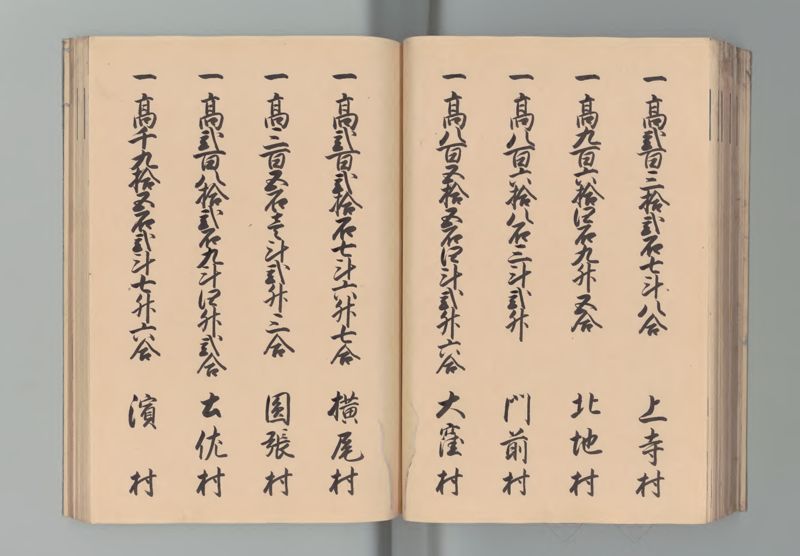 一 高弐百三拾弐石七斗八合 上寺村
一 高九百六拾四石九升五合 北地村
一 高八百六拾八石三斗弐升 門前村
一 高八百五拾五石四斗弐升六合 大窪村
一 高弐百弐拾石七斗六升七合 横尾村
一 高三百五石壱斗弐升三合 圓張村
一 高弐百八拾弐石九斗四升弐合 土佐村
一 高千九拾五石弐斗七升六合 濱村